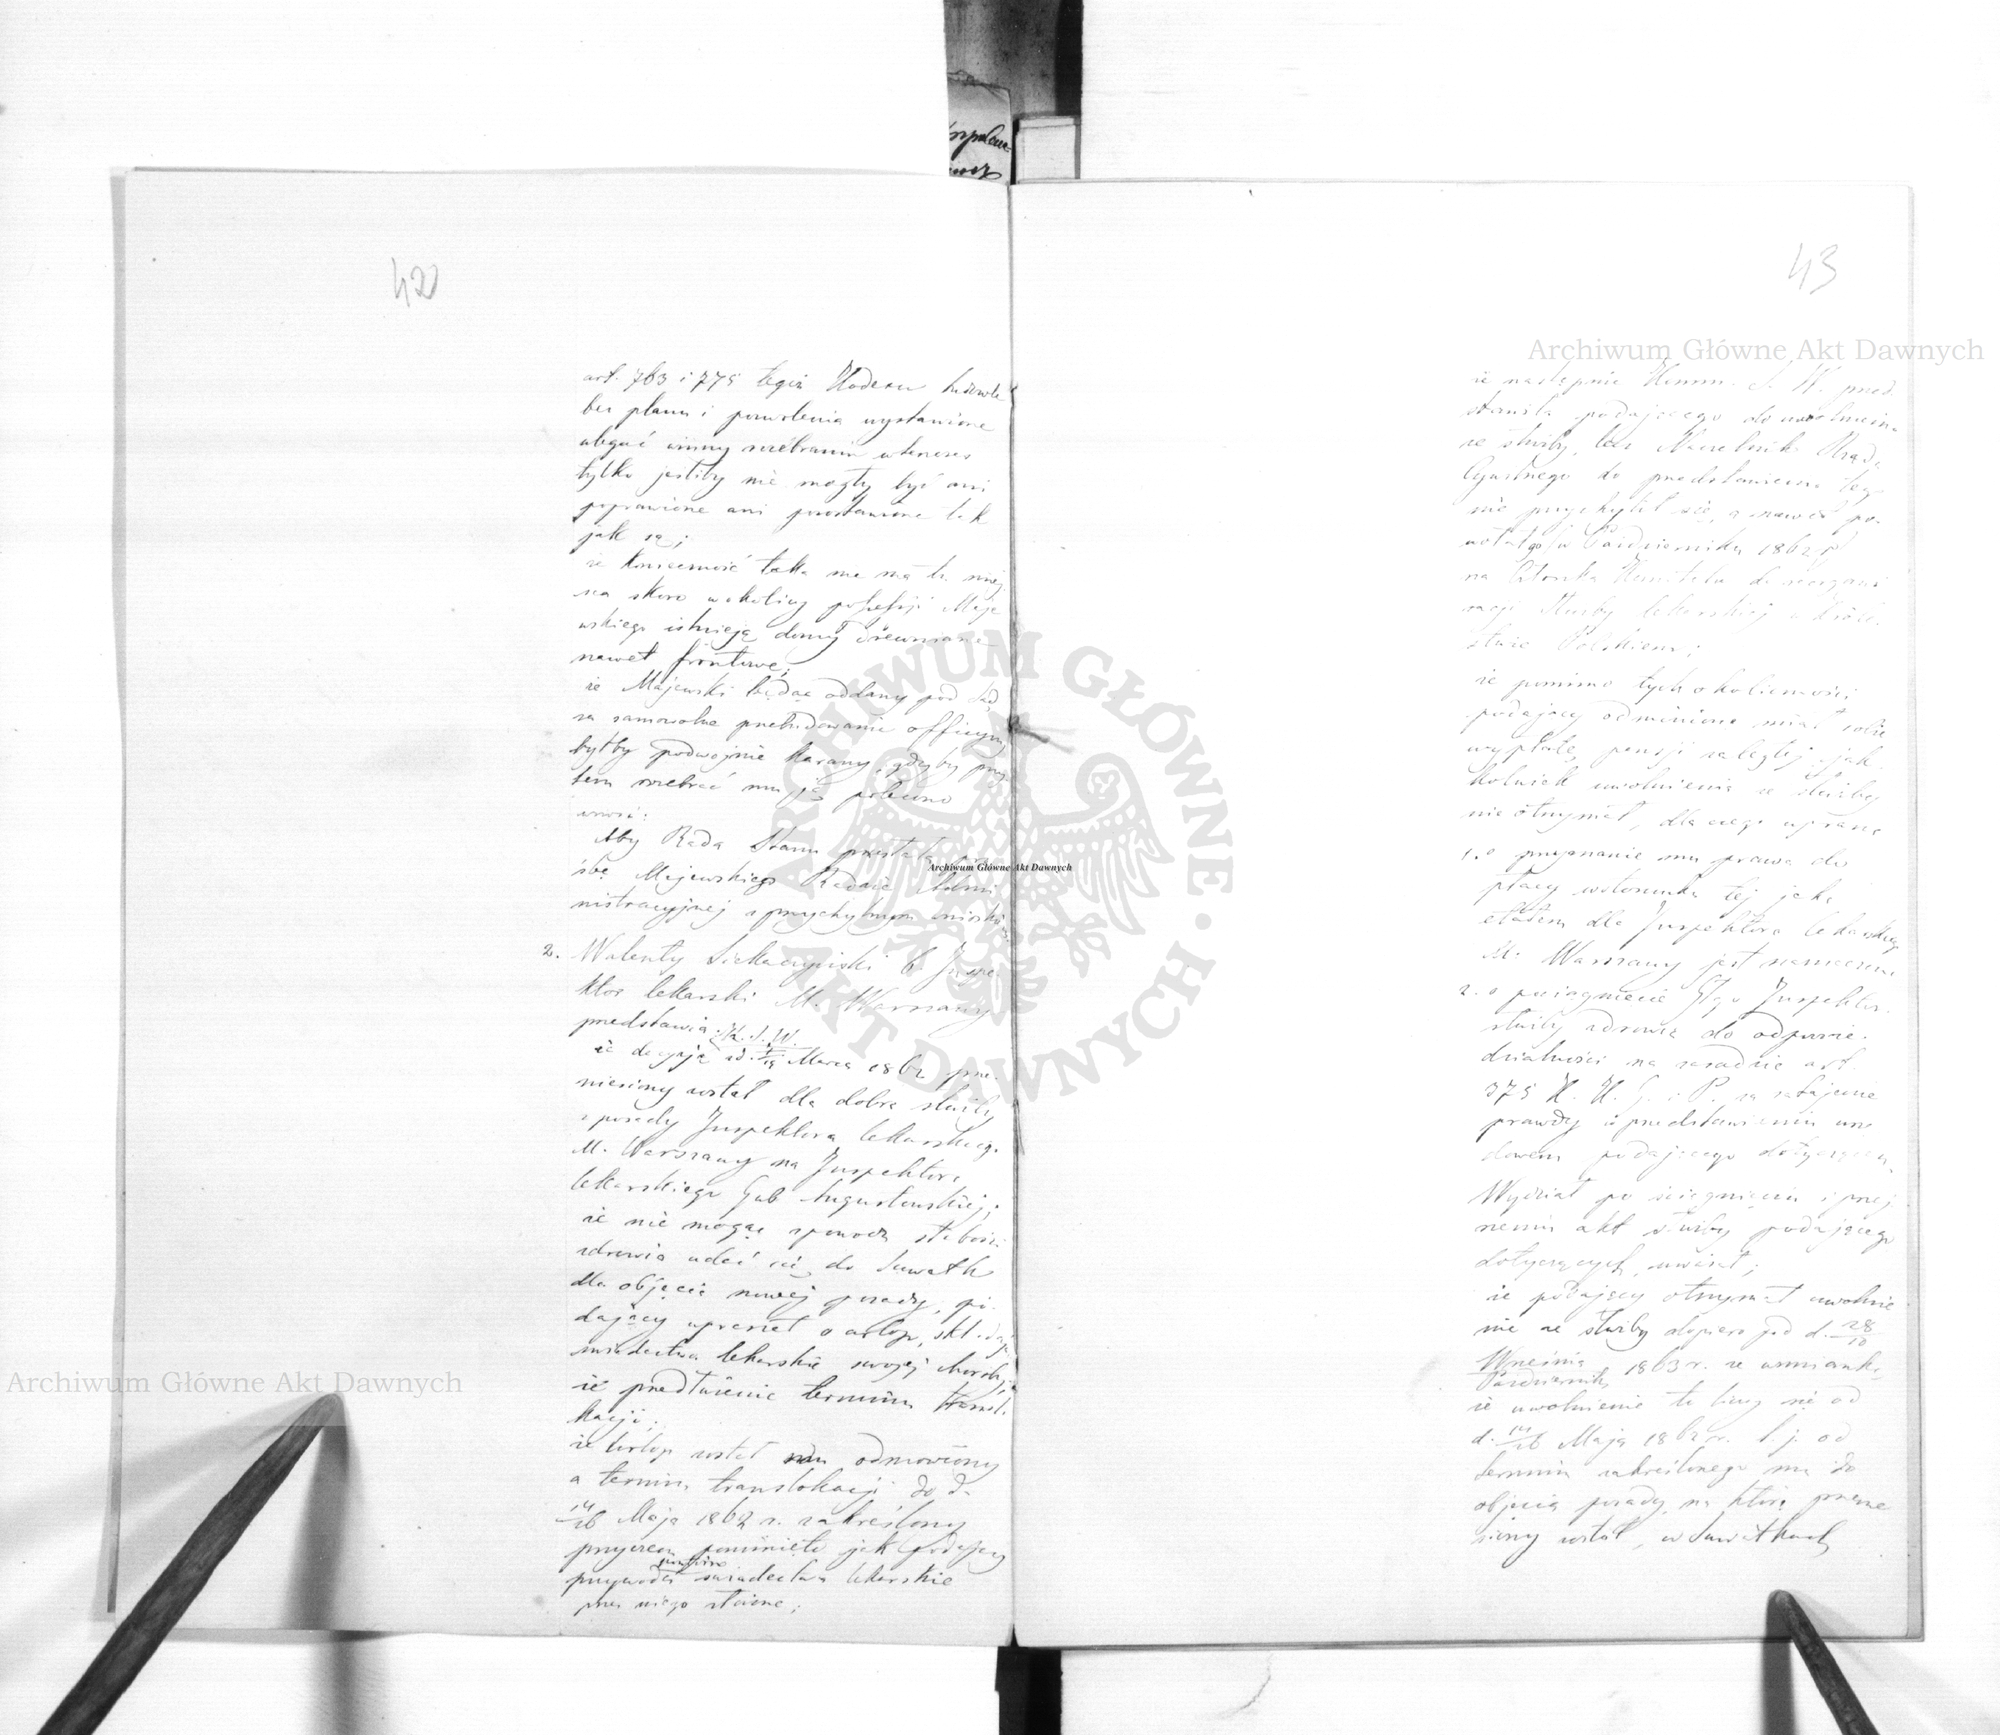 42
art. 763 i 775 tegoż Kodexu budowle
bez planu i pozwolenia wystawione
uledz winny rozebraniu wtenczas
tylko jeśliby nie mogły być ani
poprawione ani pozostawione tak
jak są;
że konieczność taka nie ma tu miej
sca skoro w okolicy possessji Maje
wskiego istnieją domy drewniane
nawet frontowe;
że Majewski będąc oddany pod Sąd
za samowolne przebudowanie officyny
byłby podwójnie karany, gdyby przy
tem rozebrać mu ją polecono
wnosi:
Aby Rada Stanu przesłała
śbę Majewskiego Radzie Admi
nistracyjnej z przychylnym wnioskiem
2. Walenty b. Inspe
ktor lekarski M. Warszawy
przedstawia:
że decyzją K. S. W. z d. Marca 1862 prze
niesiony został dla dobra służby
z posady Inspektora lekarskiego
M. Warszawy na Inspektora
lekarskiego Gub Augustowskiej;
że nie mogąc z powodu słabości
zdrowia udać się do Suwałk
dla objęcia nowej posady, po
dający upraszał o urlop, składając
świadectwa lekarskie swojej choroby,
i o przedłużenie terminu transl
kacji;
że urlop został mu odmówiony
a termin translokacji do d.
14/26 Maja 1862 r. zakreślony
przyczem pominięto jak podający
przywodzi świadectwa lekarskie
przez niego złożone;
43
że następnie Komm. S. W. przed
stawiła podającego do uwolnienia
ze służby, lecz Naczelnik Rządu
Cywilnego do przedstawienia tego
nie przychylił się, a nawet po
wołał go w Październiku 1862 r
na Członka Komitetu do reorgani
zacji służby lekarskiej w Króle
stwie Polskiem;
że pomimo tych okoliczności
podający odmówioną miał sobie
wypłatę pensji zaległej jak
kolwiek uwolnienia ze służby
nie otrzymał, dla czego uprasza
1. o przyznanie mu prawa do
płacy w stosunku tej jaka
etatem dla Inspektora lekarskiego
M. Warszawy jest naznaczona
2. o pociągnięcie Inspektora
służby zdrowia do odpowie
dzialności na zasadzie art.
375 K. K. G. i P. za zatajenie
prawdy w przedstawieniu
podającego dotyczącem.
Wydział po ściągnięciu i przej
rzeniu akt służby podającego
dotyczących, uważał;
że podający otrzymał uwolnie
nie ze służby dopiero pod d. 28/10
Września/Października 1863 r. ze wzmianką
że uwolnienie to liczy się od
d. 14/26 Maja 1862 r. t. j. od
terminu zakreślonego mu do
objęcia posady na którą przenie
siony został, w Suwałkach
Archiwum Główne Akt Dawnych
Archiwum Główne Akt Dawnych
Archiwum Główne Akt Dawnych
ARCHIWUM GŁÓWNE AKT DAWNYCH